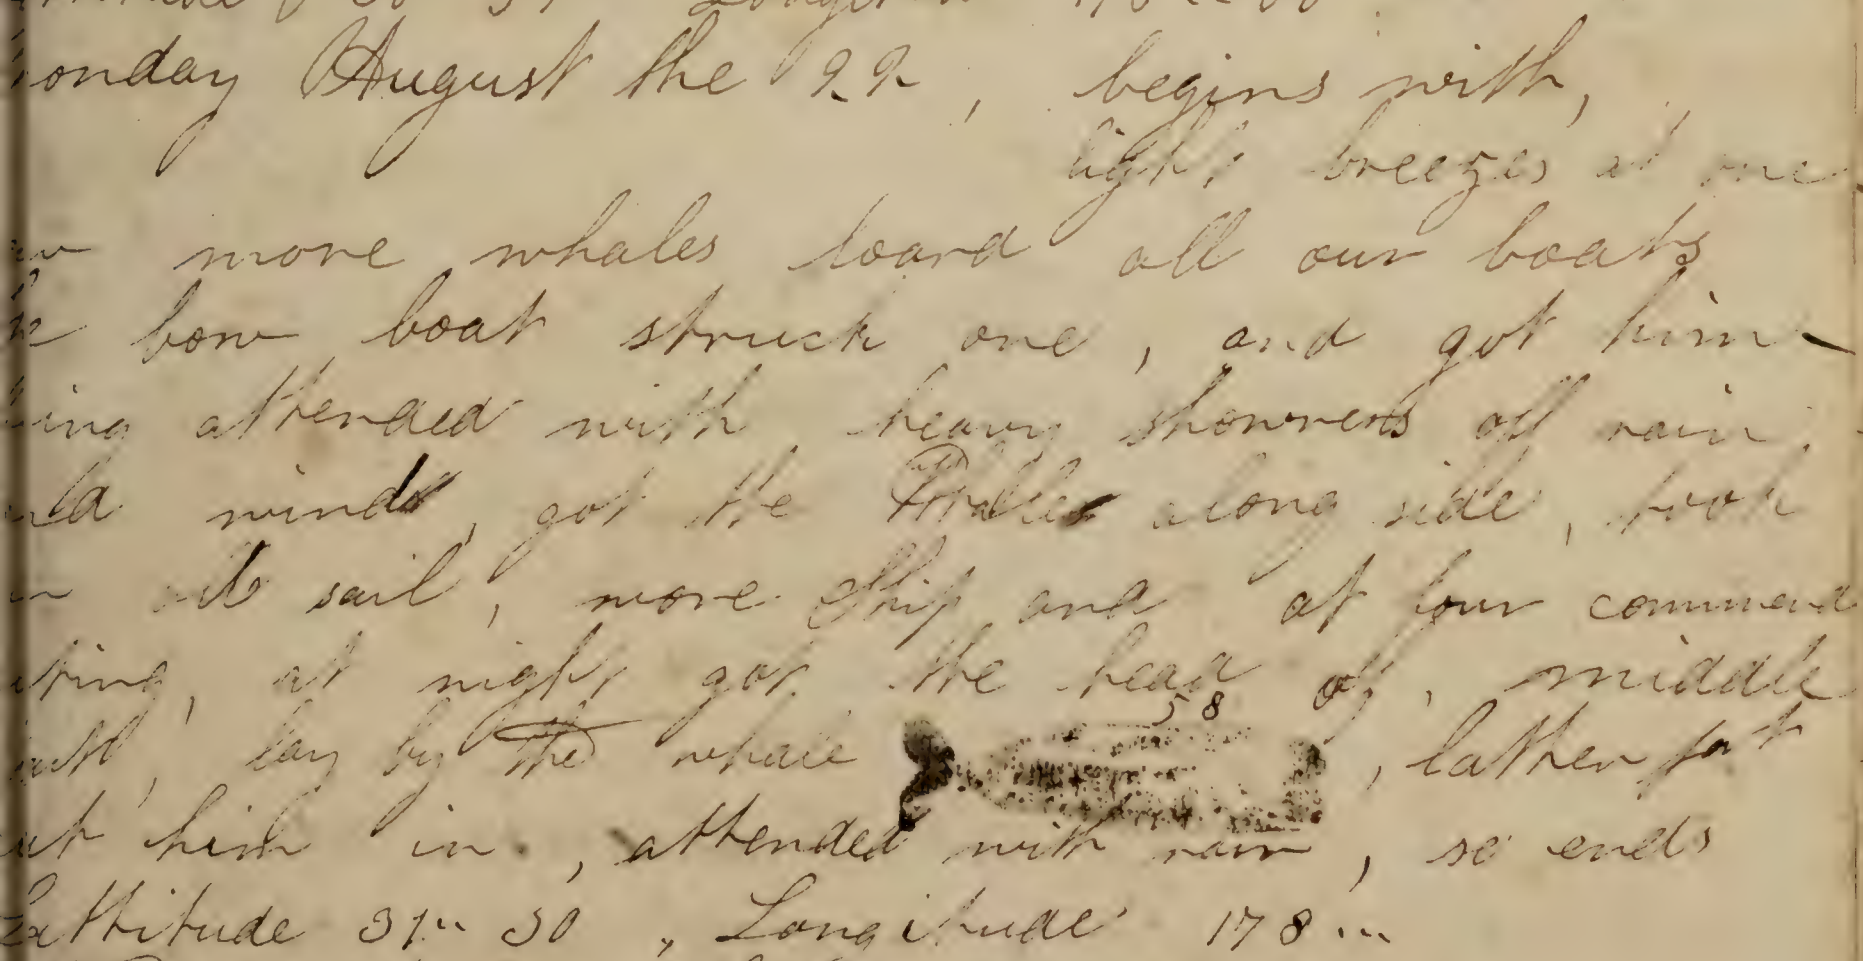 Longitude 178
onday August the 22, begins with,
light breezes at one
more whales loard all our boats
bow boat struck one, and got him
ing attended with heavy showers off rain,
wind, got the along side, took
sail, wore Ship and at four commenc
tting, at night got the head off, middle
lay by the whale 58, latter part
ut him in, attended with rain, so ends
Lattitude 31.. 50, Longitude 178...